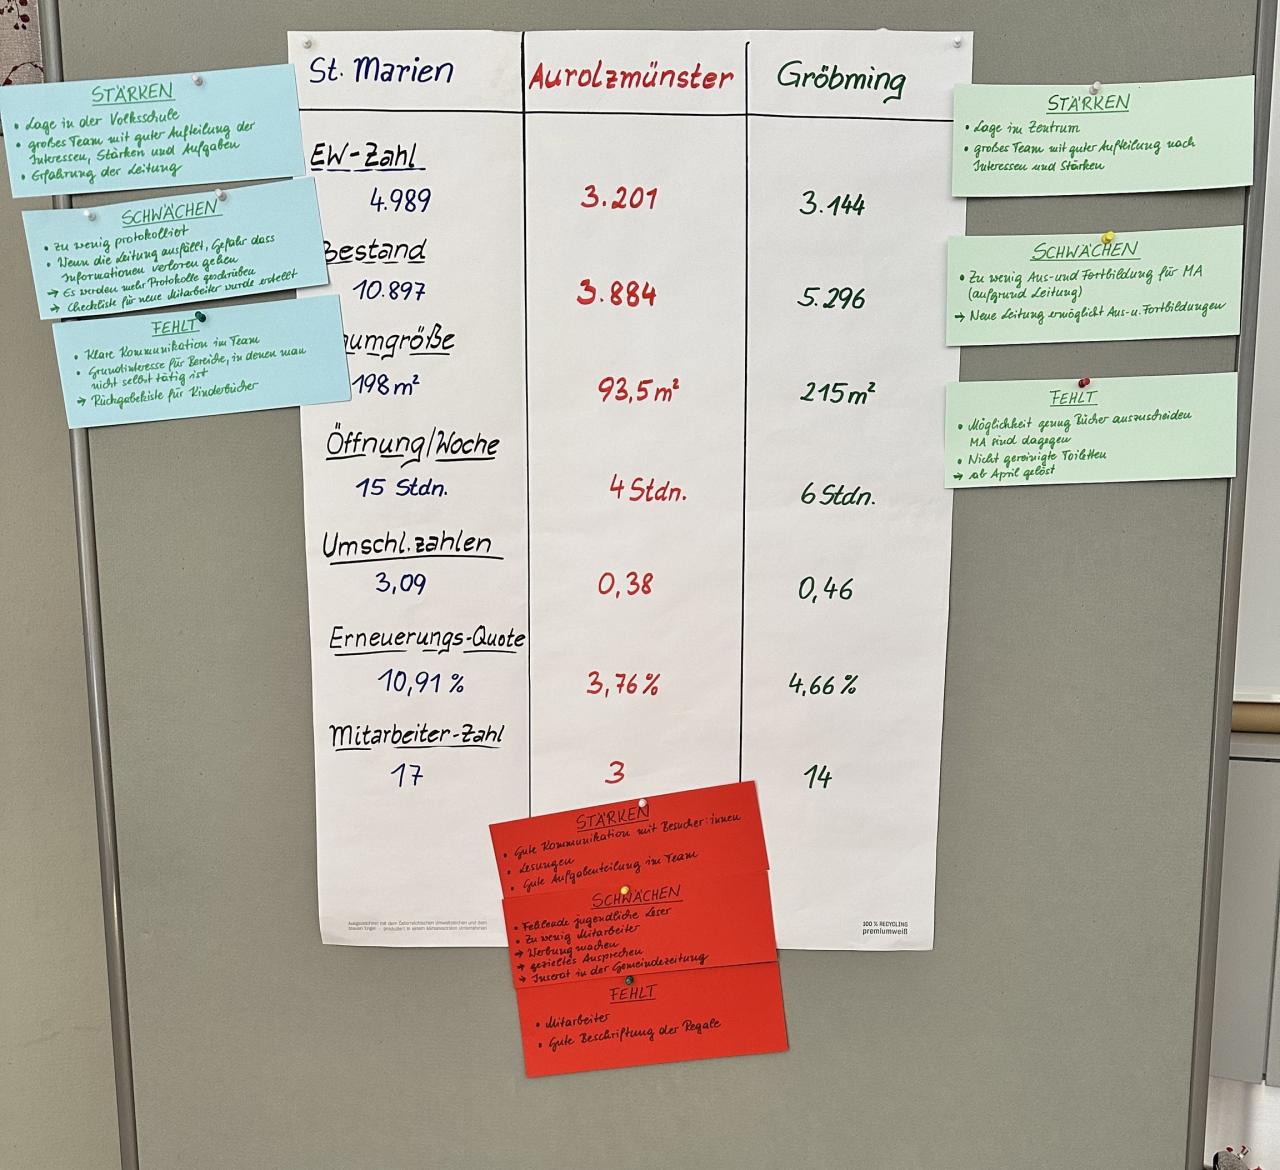 St. Marien
Aurolzmünster
Gröbming
EW-Zahl
4.989
3.201
3.144
Bestand
10.897
3.884
5.296
umgröße
198 m²
93,5 m²
215 m²
Öffnung/Woche
15 Stdn.
4 Stdn.
6 Stdn.
Umschl.zahlen
3,09
0,38
0,46
Erneuerungs-Quote
10,91 %
3,76 %
4,66 %
Mitarbeiter-Zahl
17
3
14
STÄRKEN
• Lage in der Volksschule
• großes Team mit guter Aufteilung der
Interessen, Stärken und Aufgaben
• Erfahrung der Leitung
SCHWÄCHEN
• Zu wenig protokolliert
• Wenn die Leitung ausfällt, Gefahr dass
Informationen verloren gehen
→ Es werden mehr Protokolle geschrieben
→ Checkliste für neue Mitarbeiter wurde erstellt
FEHLT
• Klare Kommunikation im Team
• Grundinteresse für Bereiche, in denen man
nicht selbst tätig ist
→ Rückgabekiste für Kinderbücher
STÄRKEN
• Lage im Zentrum
• großes Team mit guter Aufteilung nach
Interessen und Stärken
SCHWÄCHEN
• Zu wenig Aus- und Fortbildung für MA
(aufgrund Leitung)
→ Neue Leitung ermöglicht Aus- u. Fortbildungen
FEHLT
• Möglichkeit genug Bücher auszuscheiden
MA sind dagegen
• Nicht gereinigte Toiletten
→ ab April gelöst
STÄRKEN
• Gute Kommunikation mit Besucher:innen
• Lesungen
• Gute Aufgabenteilung im Team
SCHWÄCHEN
• Fehlende jugendliche Leser
• Zu wenig Mitarbeiter
→ Werbung machen
→ gezieltes Ansprechen
→ Inserat in der Gemeindezeitung
FEHLT
• Mitarbeiter
• Gute Beschriftung der Regale
Ausgezeichnet mit dem Österreichischen Umweltzeichen und dem
blauen Engel - produziert in einem klimaneutralen Unternehmen
100 % RECYCLING
premiumweiß